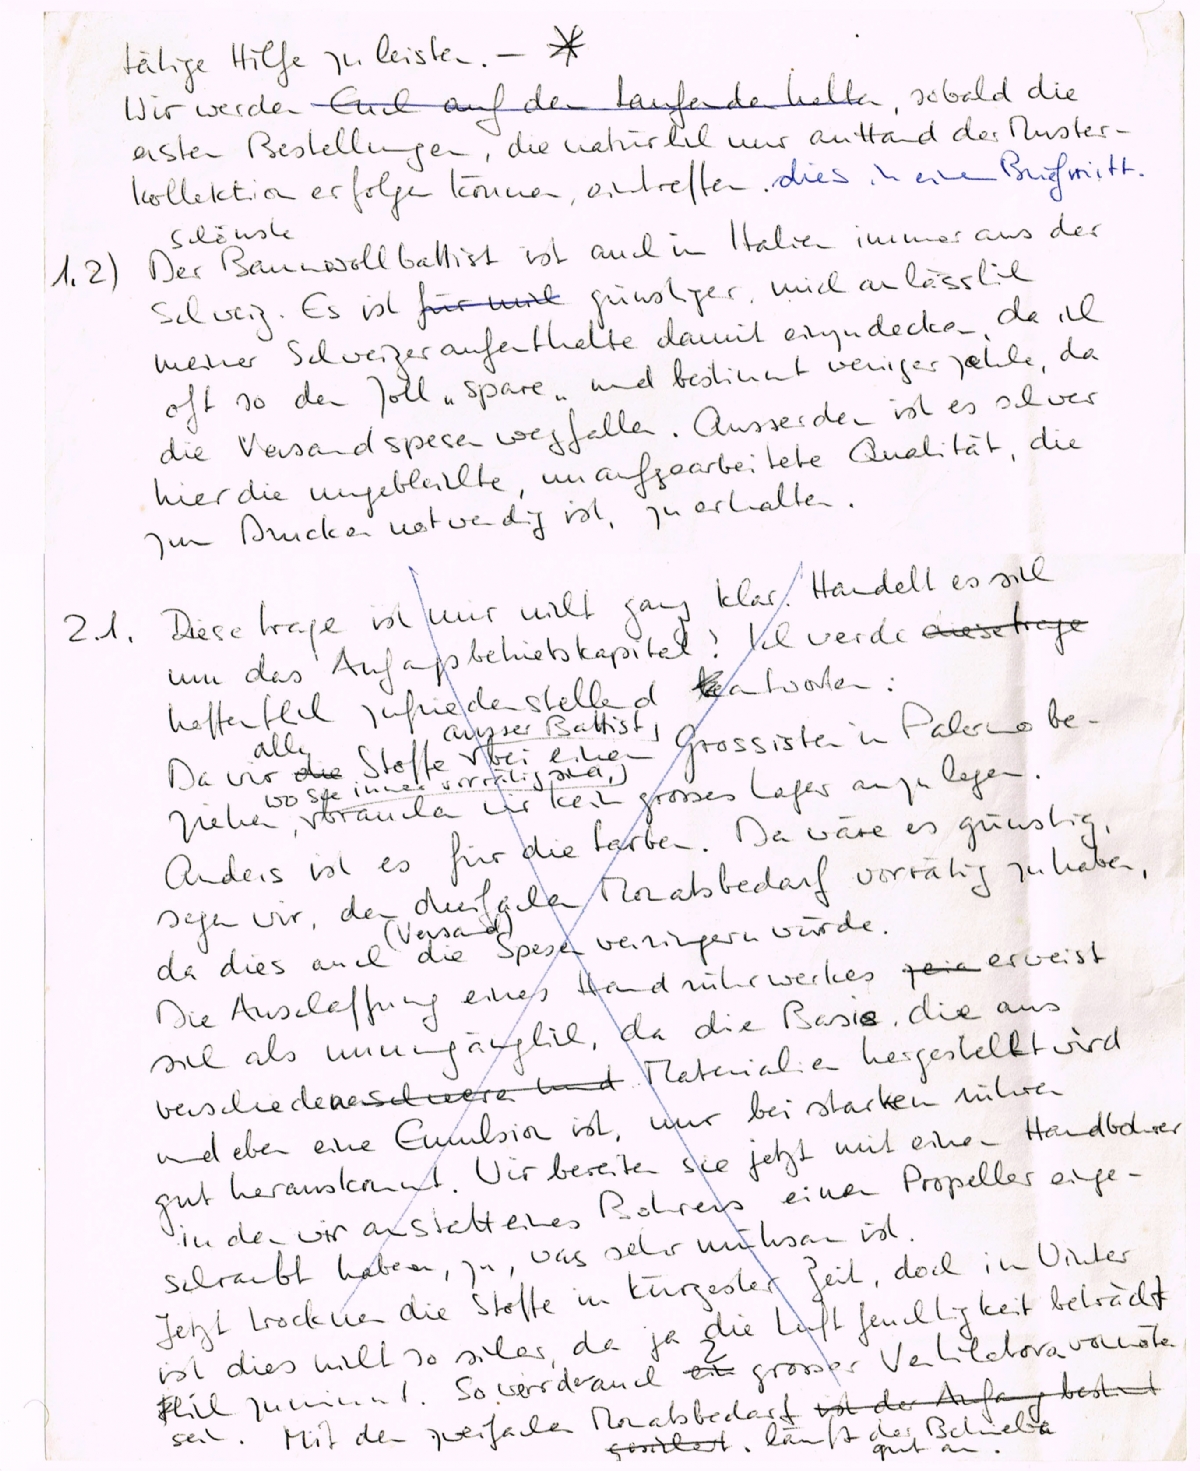 tätige Hilfe zu leisten. — *
Wir werden Euch auf dem Laufenden halten, sobald die
ersten Bestellungen, die natürlich nur anhand der Muster-
kollektion erfolgen können, eintreffen. dies in einem Brief mitt.
schönste
1.2) Der Baumwollbattist ist auch in Italien immer aus der
Schweiz. Es ist für mich günstiger, mich anlässlich
meiner Schweizeraufenthalte damit einzudecken, da ich
oft so den Zoll „spare„ und bestimmt weniger zahle, da
die Versandspesen wegfallen. Ausserdem ist es schwer
hier die ungebleichte, unaufgearbeitete Qualität, die
zum Drucken notwendig ist, zu erhalten.
2.1. Diese Frage ist mir nicht ganz klar. Handelt es sich
um das Anfangsbetriebskapital? Ich werde diese Frage
hoffentlich zufriedenstellend beantworten:
alle ausser Battist,
Da wir die Stoffe bei einem Grossisten in Palermo be-
wo sie immer vorrätig sind,
ziehen, brauchen wir kein grosses Lager anzulegen.
Anders ist es für die Farben. Da wäre es günstig,
sagen wir, den dreifachen Monatsbedarf vorrätig zu haben,
(Versand)
da dies auch die Spesen verringern würde.
Die Anschaffung eines Handrührwerkes erweist
sich als unumgänglich, da die Basis, die aus
verschiedenen Materialien hergestellt wird
und eben eine Emulsion ist, nur bei starkem rühren
gut herauskommt. Wir bereiten sie jetzt mit einem Handbohrer
in den wir anstatt eines Bohrers einen Propeller einge-
schraubt haben, zu, was sehr mühsam ist.
Jetzt trocknen die Stoffe in kürzester Zeit, doch im Winter
ist dies nicht so sicher, da ja die Luftfeuchtigkeit beträcht
lich zunimmt. So werden auch ein 2 grosse Ventilatoren vonnöten
sein. Mit dem zweifachen Monatsbedarf ist der Anfang bestimmt
gesichert. läuft der Betrieb
gut an.